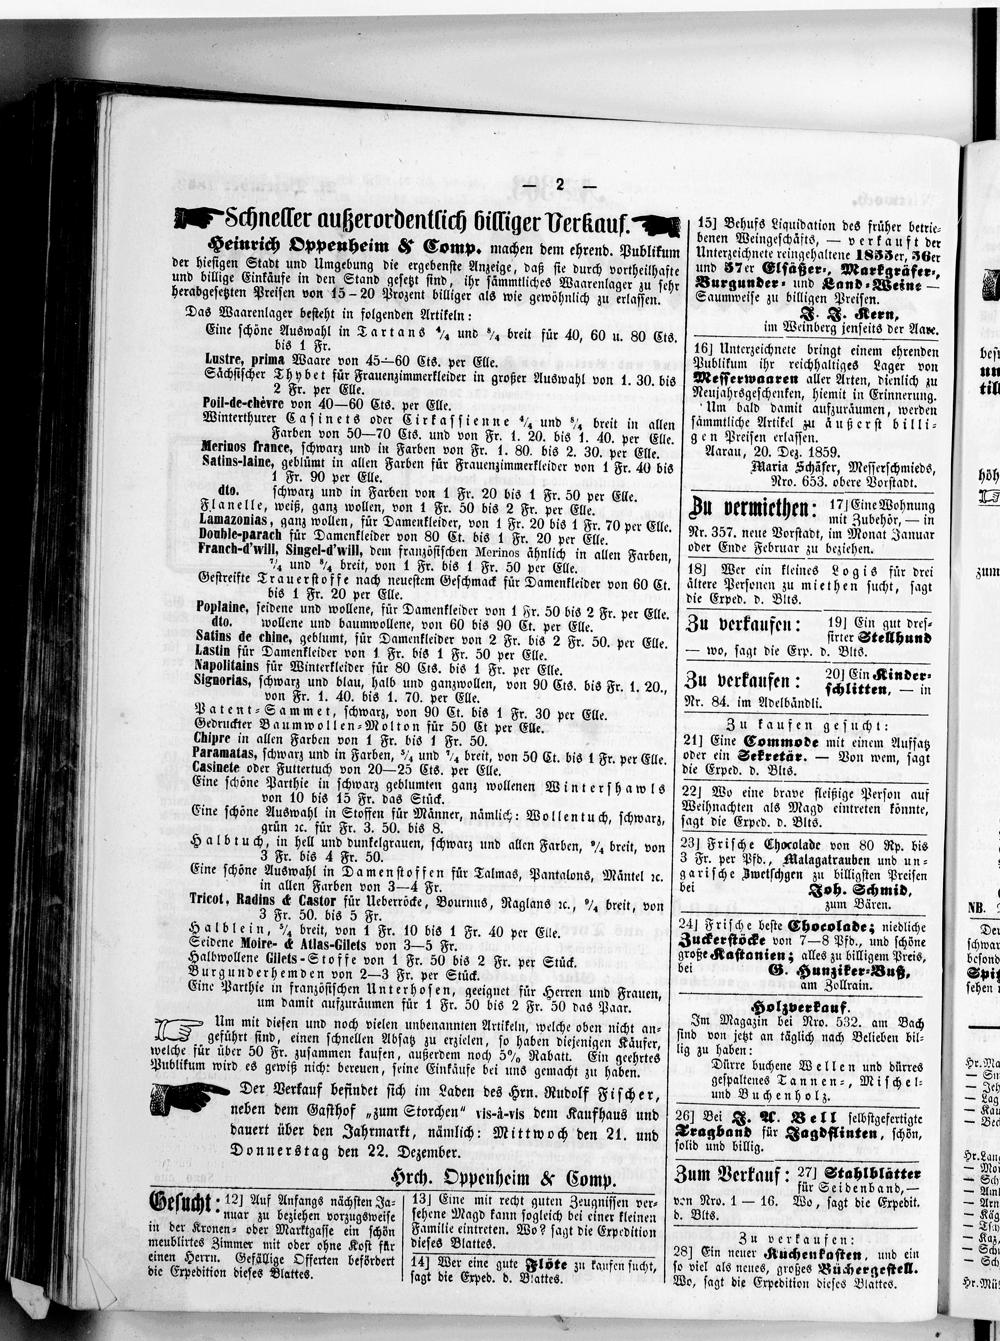 — 2 —
Schneller außerordentlich billiger Verkauf.
Heinrich Oppenheim & Comp. machen dem ehrend. Publikum
der hiesigen Stadt und Umgebung die ergebenste Anzeige, daß sie durch vortheilhafte
und billige Einkäufe in den Stand gesetzt sind, ihr sämmtliches Waarenlager zu sehr
herabgesetzten Preisen von 15–20 Prozent billiger als wie gewöhnlich zu erlassen.
Das Waarenlager besteht in folgenden Artikeln:
Eine schöne Auswahl in Tartans 4/4 und 8/4 breit für 40, 60 u. 80 Cts.
bis 1 Fr.
Lustre, prima Waare von 45—60 Cts. per Elle.
Sächsischer Thybet für Frauenzimmerkleider in großer Auswahl von 1. 30. bis
2 Fr. per Elle.
Poil-de-chèvre von 40—60 Cts. per Elle.
Winterthurer Casinets oder Cirkassienne 4/4 und 8/4 breit in allen
Farben von 50—70 Cts. und von Fr. 1. 20. bis 1. 40. per Elle.
Merinos france, schwarz und in Farben von Fr. 1. 80. bis 2. 30. per Elle.
Satins-laine, geblümt in allen Farben für Frauenzimmerkleider von 1 Fr. 40 bis
1 Fr. 90 per Elle.
dto. schwarz und in Farben von 1 Fr. 20 bis 1 Fr. 50 per Elle.
Flanelle, weiß, ganz wollen, von 1 Fr. 50 bis 2 Fr. per Elle.
Lamazonias, ganz wollen, für Damenkleider, von 1 Fr. 20 bis 1 Fr. 70 per Elle.
Double-parach für Damenkleider von 80 Ct. bis 1 Fr. 20 per Elle.
Franch-d'will, Singel-d'will, dem französischen Merinos ähnlich in allen Farben,
7/4 und 8/4 breit, von 1 Fr. bis 1 Fr. 50 per Elle.
Gestreifte Trauerstoffe nach neuestem Geschmack für Damenkleider von 60 Ct.
bis 1 Fr. 20 per Elle.
Poplaine, seidene und wollene, für Damenkleider von 1 Fr. 50 bis 2 Fr. per Elle.
dto. wollene und baumwollene, von 60 bis 90 Ct. per Elle.
Satins de chine, geblumt, für Damenkleider von 2 Fr. bis 2 Fr. 50. per Elle.
Lastin für Damenkleider von 1 Fr. bis 1 Fr. 50 per Elle.
Napolitains für Winterkleider für 80 Cts. bis 1 Fr. per Elle.
Signorias, schwarz und blau, halb und ganzwollen, von 90 Cts. bis Fr. 1. 20.,
von Fr. 1. 40. bis 1. 70. per Elle.
Patent-Sammet, schwarz, von 90 Ct. bis 1 Fr. 30 per Elle.
Gedruckter Baumwollen-Molton für 50 Ct per Elle.
Chipre in allen Farben von 1 Fr. bis 1 Fr. 50.
Paramatas, schwarz und in Farben, 5/4 und 7/4 breit, von 50 Ct. bis 1 Fr. per Elle.
Casinete oder Futtertuch von 20—25 Cts. per Elle.
Eine schöne Parthie in schwarz geblumten ganz wollenen Wintershawls
von 10 bis 15 Fr. das Stück.
Eine schöne Auswahl in Stoffen für Männer, nämlich: Wollentuch, schwarz,
grün ꝛc. für Fr. 3. 50. bis 8.
Halbtuch, in hell und dunkelgrauen, schwarz und allen Farben, 9/4 breit, von
3 Fr. bis 4 Fr. 50.
Eine schöne Auswahl in Damenstoffen für Talmas, Pantalons, Mäntel ꝛc.
in allen Farben von 3—4 Fr.
Tricot, Radins & Castor für Ueberröcke, Bournus, Raglans ꝛc., 9/4 breit, von
3 Fr. 50. bis 5 Fr.
Halblein, 5/4 breit, von 1 Fr. 10 bis 1 Fr. 40 per Elle.
Seidene Moire- & Atlas-Gilets von 3—5 Fr.
Halbwollene Gilets-Stoffe von 1 Fr. 50 bis 2 Fr. per Stück.
Burgunderhemden von 2—3 Fr. per Stück.
Eine Parthie in französischen Unterhosen, geeignet für Herren und Frauen,
um damit aufzuräumen für 1 Fr. 50 bis 2 Fr. 50 das Paar.
Um mit diesen und noch vielen unbenannten Artikeln, welche oben nicht an-
geführt sind, einen schnellen Absatz zu erzielen, so haben diejenigen Käufer,
welche für über 50 Fr. zusammen kaufen, außerdem noch 5% Rabatt. Ein geehrtes
Publikum wird es gewiß nicht bereuen, seine Einkäufe bei uns gemacht zu haben.
Der Verkauf befindet sich im Laden des Hrn. Rudolf Fischer,
neben dem Gasthof „zum Storchen“ vis-à-vis dem Kaufhaus und
dauert über den Jahrmarkt, nämlich: Mittwoch den 21. und
Donnerstag den 22. Dezember.
Hrch. Oppenheim & Comp.
Gesucht: 12] Auf Anfangs nächsten Ja-
nuar zu beziehen vorzugsweise
in der Kronen- oder Marktgasse ein schön
meublirtes Zimmer mit oder ohne Kost für
einen Herrn. Gefällige Offerten befördert
die Expedition dieses Blattes.
13] Eine mit recht guten Zeugnissen ver-
sehene Magd kann sogleich bei einer kleinen
Familie eintreten. Wo? sagt die Expedition
dieses Blattes.
14] Wer eine gute Flöte zu kaufen sucht,
sagt die Exped. d. Blattes.
15] Behufs Liquidation des früher betrie-
benen Weingeschäfts, — verkauft der
Unterzeichnete reingehaltene 1855er, 56er
und 57er Elsäßer-, Markgräfer-,
Burgunder- und Land-Weine —
Saumweise zu billigen Preisen.
J. J. Kern,
im Weinberg jenseits der Aare.
16] Unterzeichnete bringt einem ehrenden
Publikum ihr reichhaltiges Lager von
Messerwaaren aller Arten, dienlich zu
Neujahrsgeschenken, hiemit in Erinnerung.
Um bald damit aufzuräumen, werden
sämmtliche Artikel zu äußerst billi-
gen Preisen erlassen.
Aarau, 20. Dez. 1859.
Maria Schäfer, Messerschmieds,
Nro. 653. obere Vorstadt.
Zu vermiethen: 17] Eine Wohnung
mit Zubehör, — in
Nr. 357. neue Vorstadt, im Monat Januar
oder Ende Februar zu beziehen.
18] Wer ein kleines Logis für drei
ältere Personen zu miethen sucht, sagt
die Exped. d. Blts.
Zu verkaufen: 19] Ein gut dres-
sirter Stellhund
— wo, sagt die Exp. d. Blts.
Zu verkaufen: 20] Ein Kinder-
schlitten, — in
Nr. 84. im Adelbändli.
Zu kaufen gesucht:
21] Eine Commode mit einem Aufsatz
oder ein Sekretär. — Von wem, sagt
die Exped. d. Blts.
22] Wo eine brave fleißige Person auf
Weihnachten als Magd eintreten könnte,
sagt die Exped. d. Blts.
23] Frische Chocolade von 80 Rp. bis
3 Fr. per Pfd., Malagatrauben und un-
garische Zwetschgen zu billigsten Preisen
bei Joh. Schmid,
zum Bären.
24] Frische beste Chocolade; niedliche
Zuckerstöcke von 7—8 Pfd., und schöne
große Kastanien; alles zu billigem Preis,
bei G. Hunziker-Buß,
am Zollrain.
Holzverkauf.
Im Magazin bei Nro. 532. am Bach
sind von jetzt an täglich nach Belieben bil-
lig zu haben:
Dürre buchene Wellen und dürres
gespaltenes Tannen-, Mischel-
und Buchenholz.
26] Bei J. A. Bell selbstgefertigte
Tragband für Jagdflinten, schön,
solid und billig.
Zum Verkauf: 27] Stahlblätter
für Seidenband, —
von Nro. 1 — 16. Wo, sagt die Expedit.
d. Blts.
Zu verkaufen:
28] Ein neuer Kuchenkasten, und ein
so viel als neues, großes Büchergestell.
Wo, sagt die Expedition dieses Blattes.
NB.